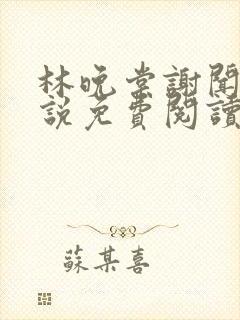 林晚棠謝聞
說免費閱讀
蘇某喜